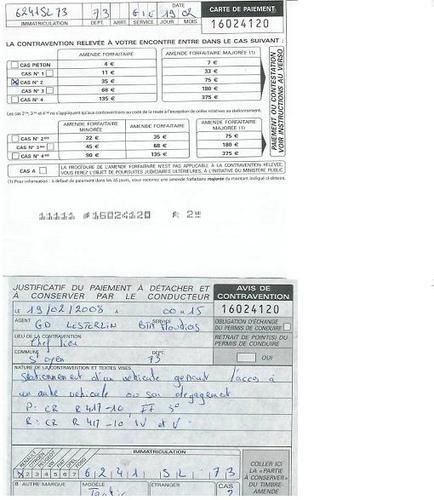 6241SL 73 73 19 02
DATE
IMMATRICULATION DEPT. ARRT. SERVICE JOUR MOIS
CARTE DE PAIEMENT
16024120
LA CONTRAVENTION RELEVÉE À VOTRE ENCONTRE ENTRE DANS LE CAS SUIVANT :
AMENDE FORFAITAIRE AMENDE FORFAITAIRE MAJORÉE (1)
CAS PIÉTON 4 € 7 €
CAS N° 1 11 € 33 €
CAS N° 2 35 € 75 €
CAS N° 3 68 € 180 €
CAS N° 4 135 € 375 €
PAIEMENT OU CONTESTATION
VOIR INSTRUCTIONS AU VERSO
Les cas 2, 3 et 4 ne s'appliquent qu'aux contraventions au code de la route à l'exception de celles relatives au stationnement.
AMENDE FORFAITAIRE MINORÉE AMENDE FORFAITAIRE AMENDE FORFAITAIRE MAJORÉE (1)
CAS N° 2 22 € 35 € 75 €
CAS N° 3 45 € 68 € 180 €
CAS N° 4 90 € 135 € 375 €
CAS A LA PROCÉDURE DE L'AMENDE FORFAITAIRE N'EST PAS APPLICABLE À LA CONTRAVENTION RELEVÉE,
VOUS FEREZ L'OBJET DE POURSUITES JUDICIAIRES ULTÉRIEURES, À L'INITIATIVE DU MINISTÈRE PUBLIC
(1) Pour information : à défaut de paiement dans les 45 jours, vous recevrez une amende forfaitaire majorée du montant indiqué ci-dessus.
11111 #16024120 2
JUSTIFICATIF DU PAIEMENT À DÉTACHER ET
À CONSERVER PAR LE CONDUCTEUR
AVIS DE
CONTRAVENTION
16024120
LE 19/02/2008 A 00 H 15
AGENT SERVICE
GD
OBLIGATION D'ÉCHANGE
DU PERMIS DE CONDUIRE
LIEU DE LA CONTRAVENTION
Chef lieu
RETRAIT DE POINT(S) DU
PERMIS DE CONDUIRE
COMMUNE DEPT.
St oyen 73
OUI
NATURE DE LA CONTRAVENTION ET TEXTES VISÉS
Stationnement d'un véhicule gênant l'accès à
un autre véhicule ou son dégagement
P: CR R 417-10, II 3°
R: CR R 417-10 IV et V
IMMATRICULATION
1 2 3 4 5 6 7 6241 SL 73
B AUTRE MARQUE MODÈLE ÉTRANGER CAS
COLLER ICI
LA «PARTIE
À CONSERVER»
DU TIMBRE
AMENDE